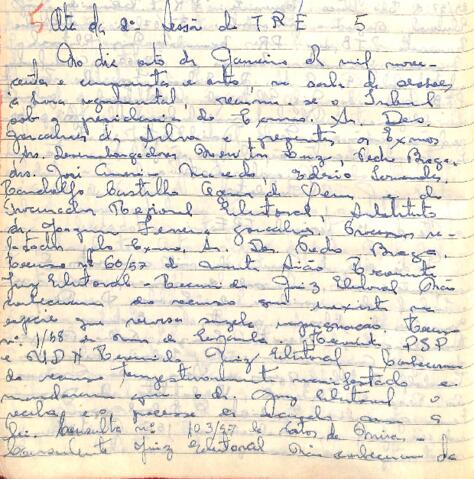 5 Ata da 2ª Sessão do T.R.E 5
No dia oito de Janeiro de mil nove-
centos e cinquenta e oito, na sala de sessões
à hora regimental, reuniu-se o Tribunal
sob a presidencia do Exmo. Sr. Des.
Gonçalves da Silva e presentes os Exmos
Srs. Desembargadores Pedro Braga,
drs. José Macedo, Fernandes,
Castillo e do
Procurador Regional Eleitoral, Substituto
dr. Joaquim Ferreira Gonçalves. Processos re-
latados pelo Exmo. Sr. Des. Pedro Braga.
Recurso nº 60/57 de Monte Sião Recorrente
Juiz Eleitoral - Recorrido Juiz Eleitoral Não
conheceram do recurso que inexiste na
espécie que Recurso
nº 1/58 Recorrente PSP
e UDN Recorrido Juiz Eleitoral Conheceram
do recurso tempestivamente manifestado e
mandaram que o dr. Juiz Eleitoral o
receba e o processe de acordo com a
lei. Consulta nº 103/57 de Patos de Minas. -
Consulente Juiz Eleitoral Não conheceram da